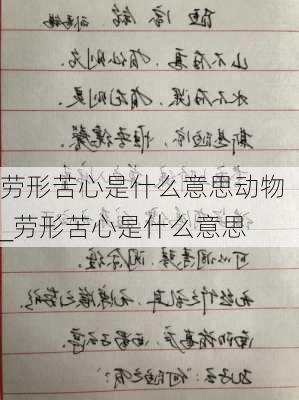 陋室铭 刘禹锡
山不在高，有仙则名。
水不在深，有龙则灵。
斯是陋室，惟吾德馨。
劳形苦心是什么意思动物
_劳形苦心是什么意思
可以调素琴，阅金经。
无丝竹之乱耳，无案牍之劳形。
南阳诸葛庐，西蜀子云亭。
孔子云："何陋之有？"